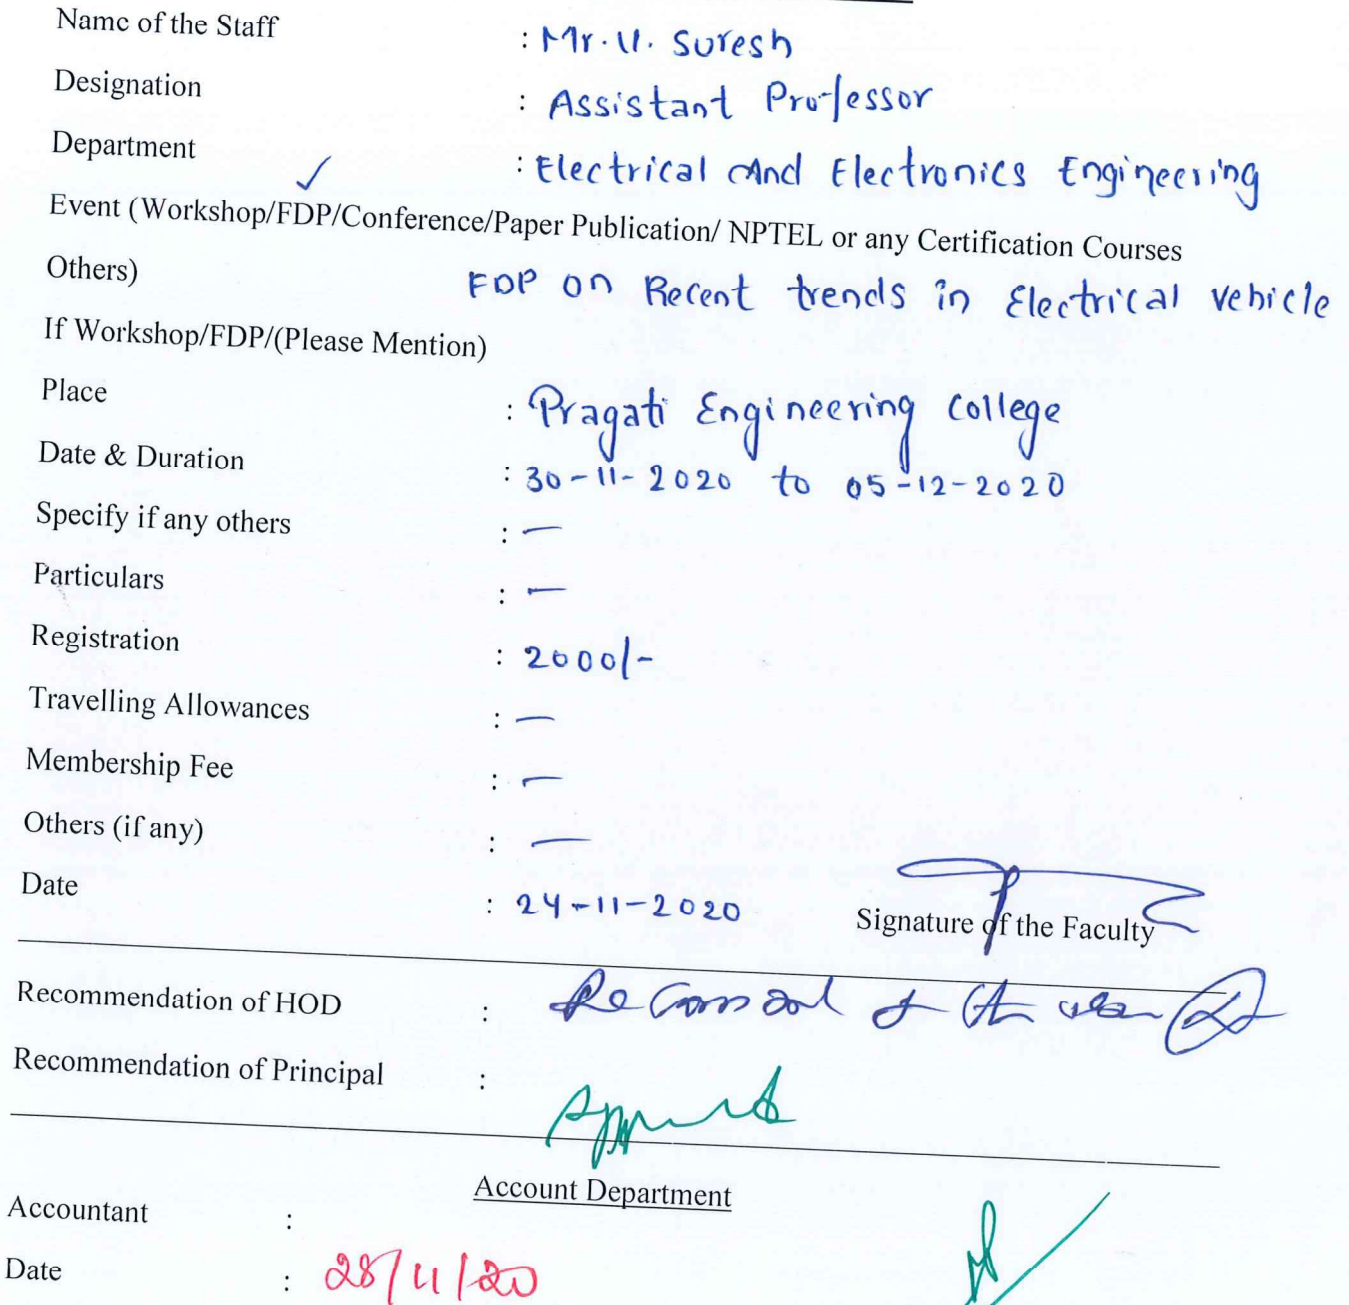 Name of the Staff : Mr. U. Suresh
Designation : Assistant Professor
Department : Electrical And Electronics Engineering
Event (Workshop/FDP/Conference/Paper Publication/ NPTEL or any Certification Courses
Others) FDP on Recent trends in Electrical vehicle
If Workshop/FDP/(Please Mention)
Place : Pragati Engineering College
Date & Duration : 30-11-2020 to 05-12-2020
Specify if any others : —
Particulars : —
Registration : 2000/-
Travelling Allowances : —
Membership Fee : —
Others (if any) : —
Date : 24-11-2020 Signature of the Faculty
Recommendation of HOD :
Recommendation of Principal : Approved
Account Department
Accountant :
Date : 28/11/20